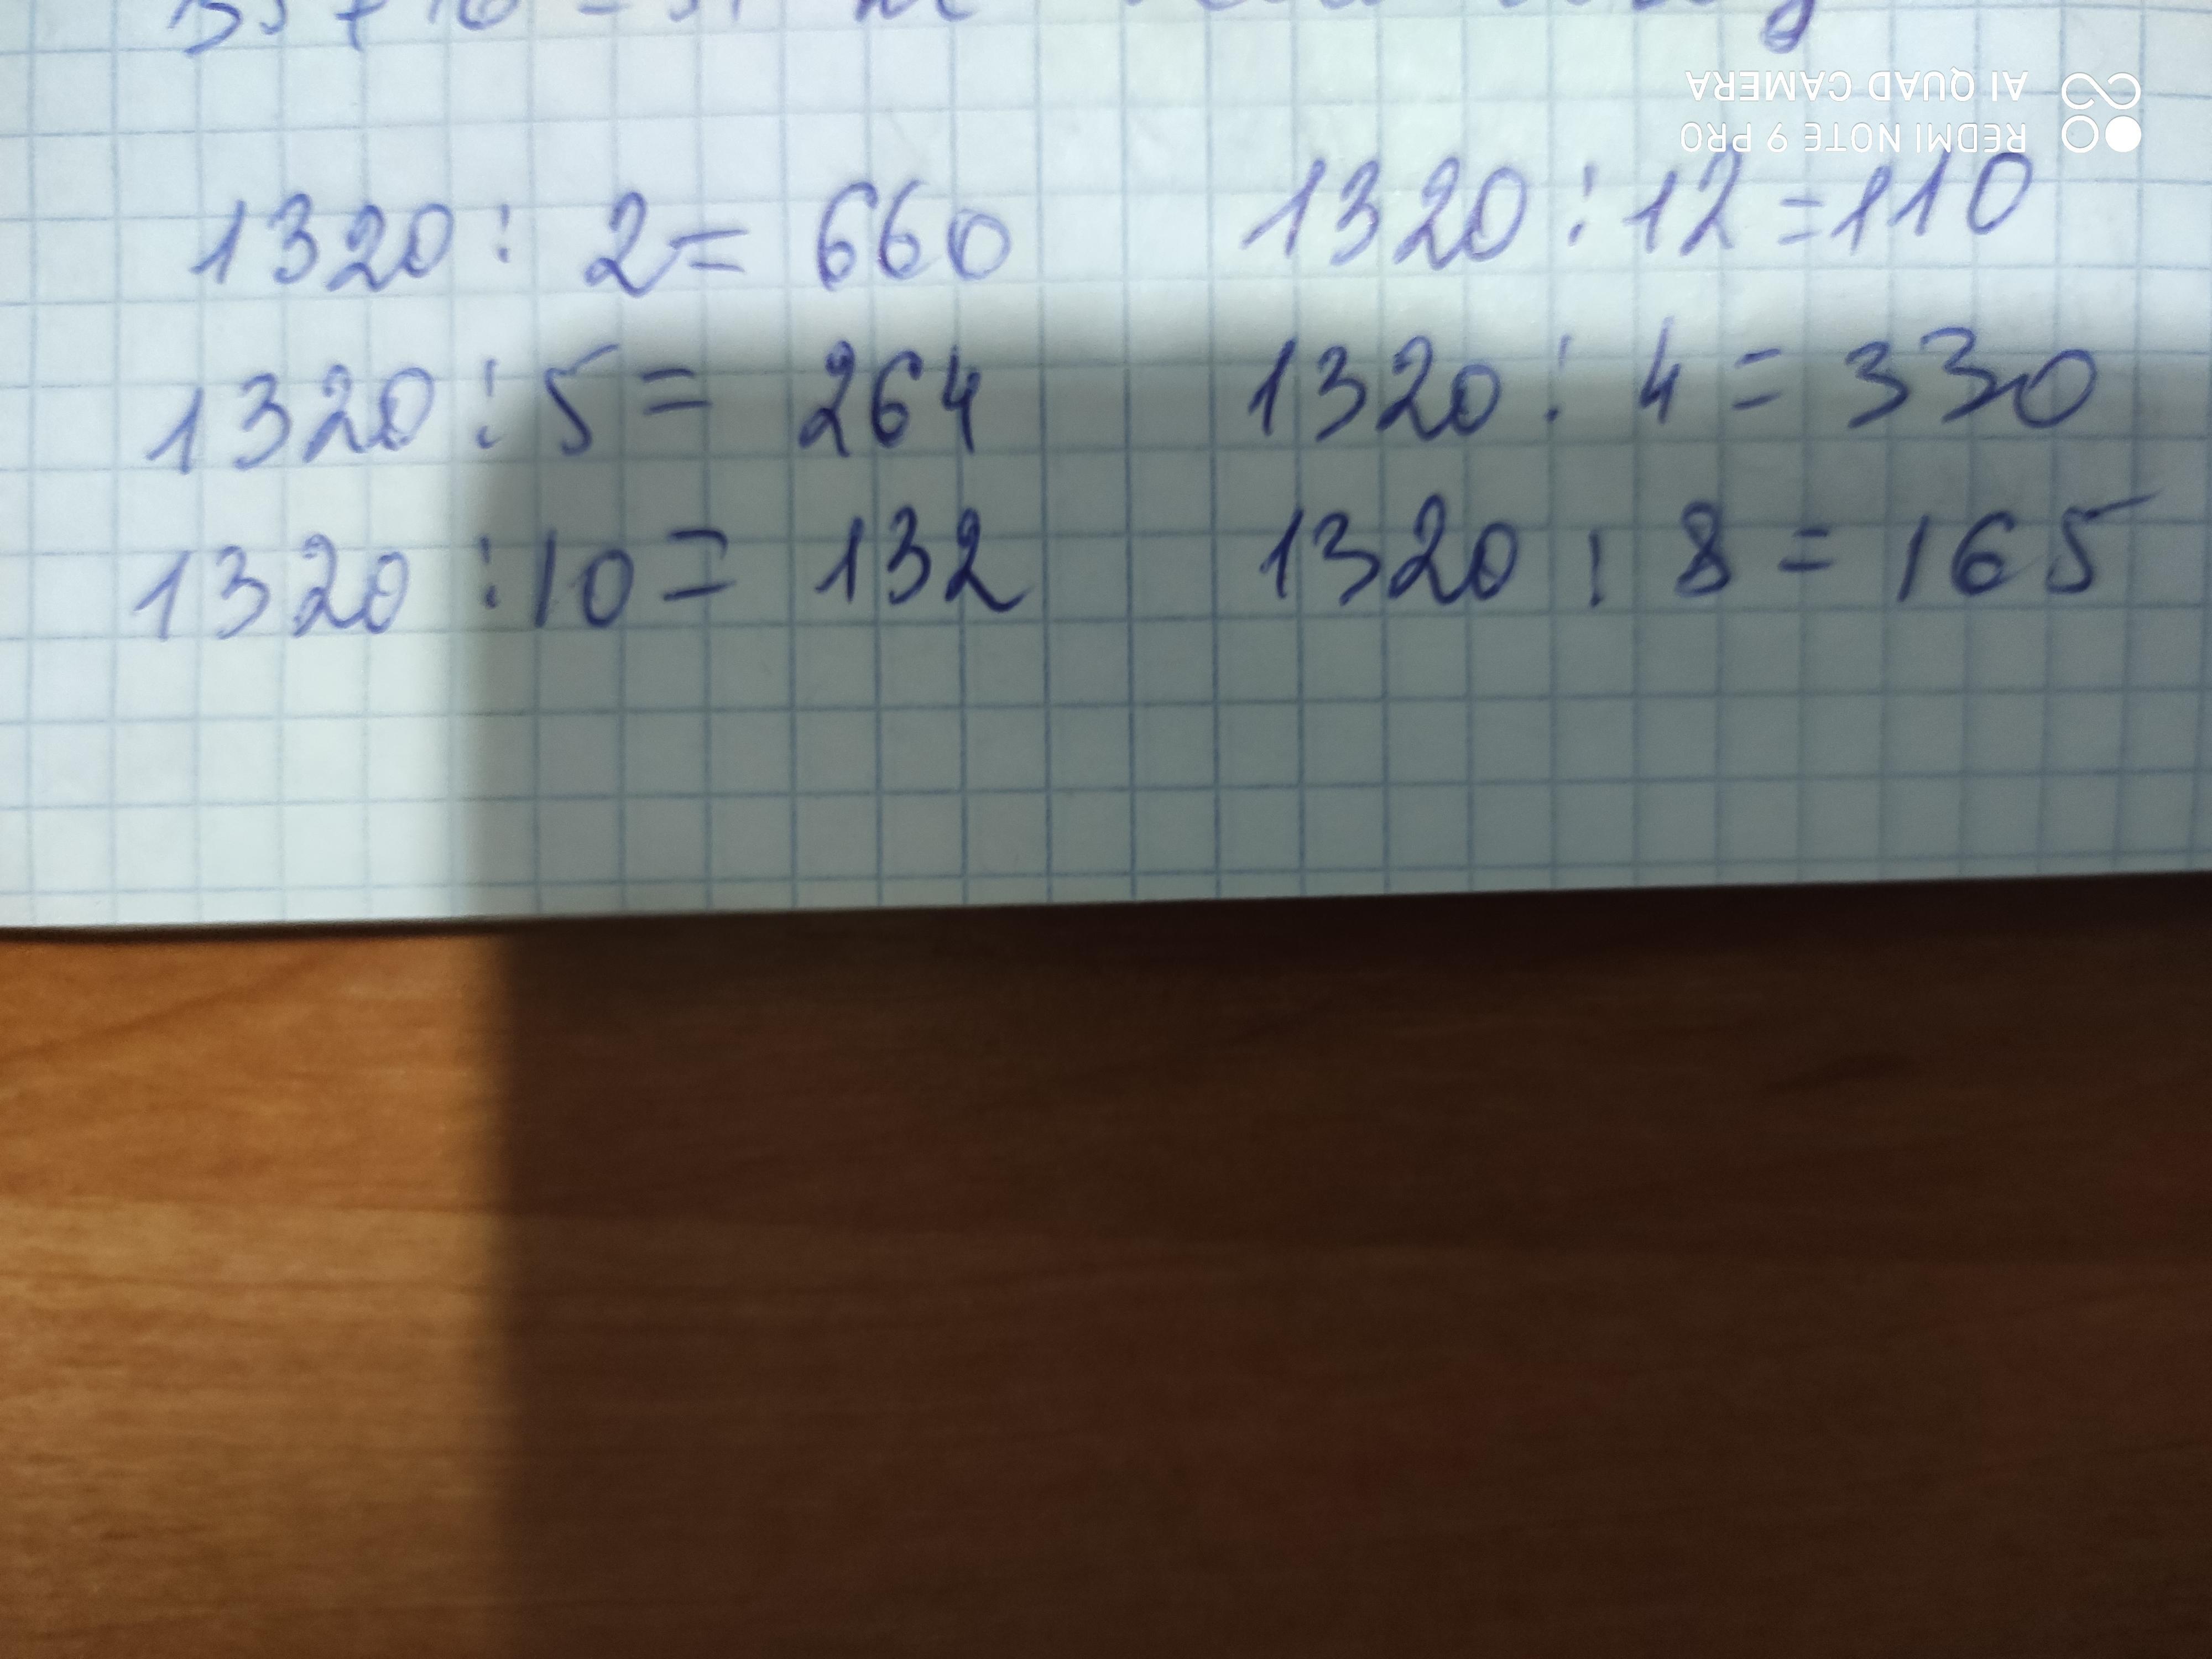 1320 : 2 = 660
1320 : 5 = 264
1320 : 10 = 132
1320 : 12 = 110
1320 : 4 = 330
1320 : 8 = 165
REDMI NOTE 9 PRO
AI QUAD CAMERA